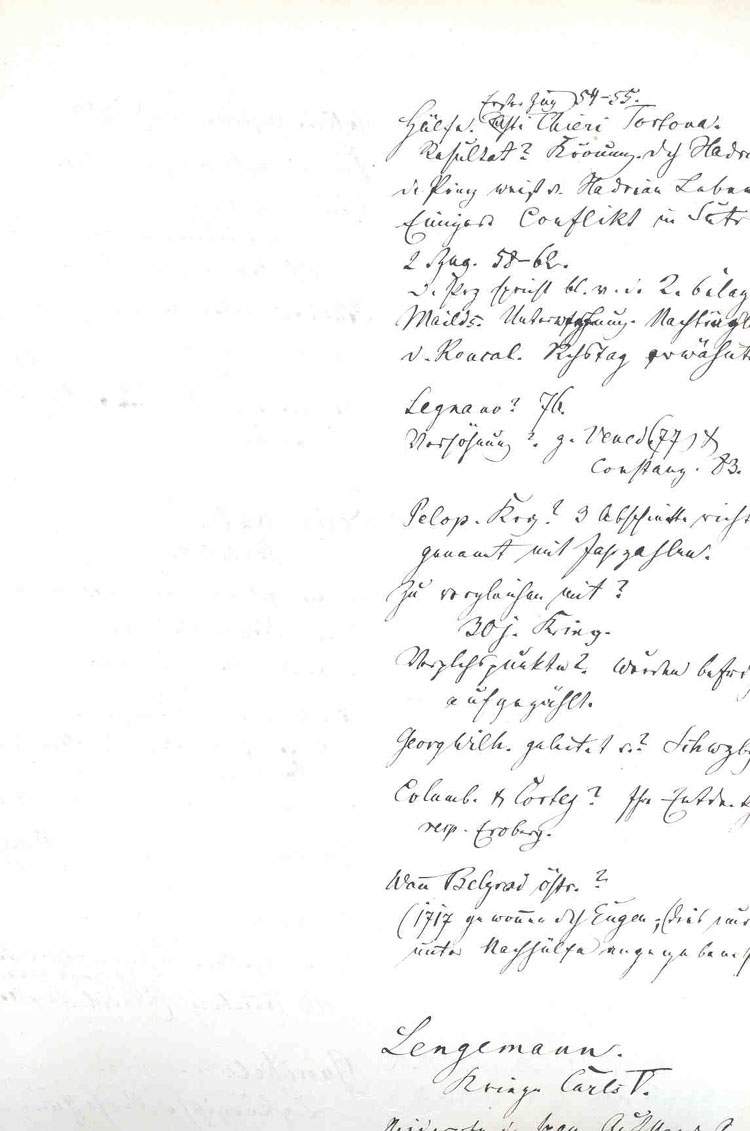 Erster Zug 54-55.
Hülfe. Asti Chieri Tortona.
Resultat? Krönung. dch Hadr
de Prny weist v. Hadrian
Einiges Conflikt in Sutr
2 Zug. 58-62.
spricht bl. v. d. 2. belag
Mailds. Unterwerfung. Nachträgl
d. Roncal. Rchstag erwähnt
Legnano? 76.
Versöhnung? z. Vened (77) &
Constanz. 83.
Pelop. Krg? 3 Abschnitte richt
genannt mit Jahrzahlen.
Zu vergleichen mit?
30j. Krieg.
Verglchspunkte? wurden befri
aufgezählt.
Georg Wilh. geleitet v.? Schwzbg
Columb. & Cortez? Ihre Entdeck
resp. Eroberg.
Wann Belgrad östr.?
(1717 gewonnen dch Eugen; (dies nur
unter Nachhülfe angegeben
Lengemann.
Kriege Carls V.